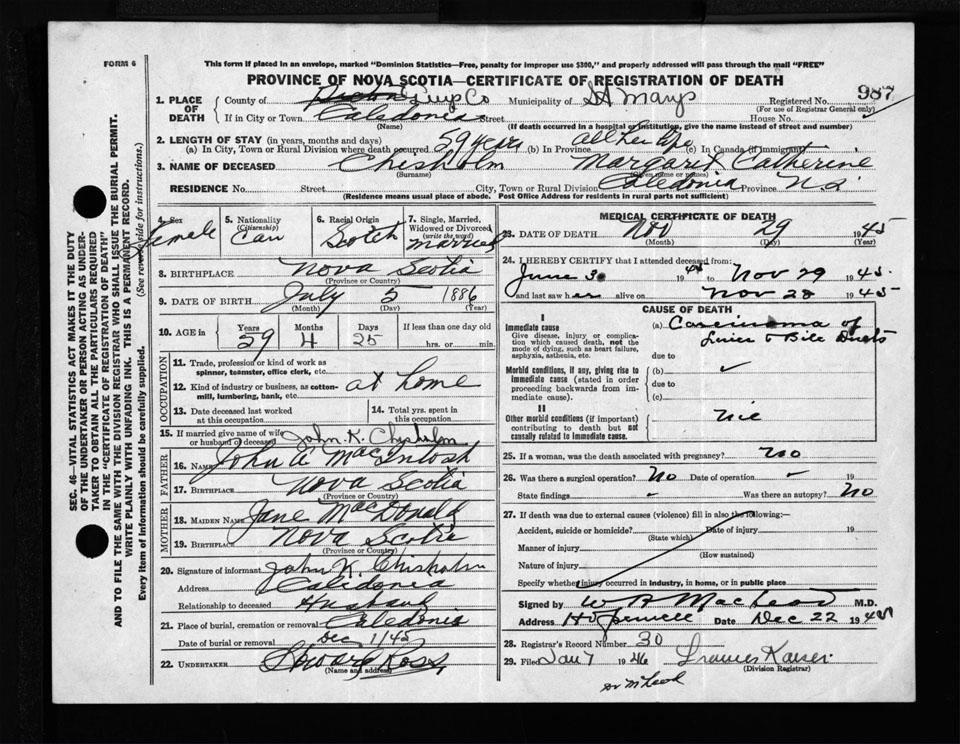 FORM 6
This form if placed in an envelope, marked "Dominion Statistics—Free, penalty for improper use $300," and properly addressed will pass through the mail "FREE"
PROVINCE OF NOVA SCOTIA—CERTIFICATE OF REGISTRATION OF DEATH
1. PLACE OF DEATH
County of Pictou Guys Co Municipality of St Marys Registered No. 987
(For use of Registrar General only)
If in City or Town Caledonia Street House No.
(Name) (If death occurred in a hospital or institution, give the name instead of street and number)
2. LENGTH OF STAY (in years, months and days)
(a) In City, Town or Rural Division where death occurred 59 years (b) In Province all her life (c) In Canada (if immigrant)
3. NAME OF DECEASED Chisholm Margaret Catherine
(Surname) (Given name or names)
RESIDENCE No. Street City, Town or Rural Division Caledonia Province N.S
(Residence means usual place of abode. Post Office Address for residents in rural parts not sufficient)
4. Sex
female
5. Nationality
(Citizenship)
Can
6. Racial Origin
Scotch
7. Single, Married, Widowed or Divorced
(write the word)
married
8. BIRTHPLACE Nova Scotia
(Province or Country)
9. DATE OF BIRTH July 5 1886
(Month) (Day) (Year)
10. AGE in
Years Months Days If less than one day
59 4 25 hrs. or min.
OCCUPATION
11. Trade, profession or kind of work as spinner, teamster, office clerk, etc.
12. Kind of industry or business, as cotton-mill, lumbering, bank, etc.
at home
13. Date deceased last worked at this occupation
14. Total yrs. spent in this occupation
15. If married give name of wife or husband of deceased John K. Chisholm
FATHER
16. NAME John A MacIntosh
17. BIRTHPLACE Nova Scotia
(Province or Country)
MOTHER
18. MAIDEN NAME Jane MacDonald
19. BIRTHPLACE Nova Scotia
(Province or Country)
20. Signature of informant John K. Chisholm
Address Caledonia
Relationship to deceased Husband
21. Place of burial, cremation or removal Caledonia
Date of burial or removal Dec 1/45
22. UNDERTAKER Howard Ross
(Name and address)
MEDICAL CERTIFICATE OF DEATH
23. DATE OF DEATH Nov 29 1945
(Month) (Day) (Year)
24. I HEREBY CERTIFY that I attended deceased from:
June 30 1945 to Nov 29 1945
and last saw her alive on Nov 28 1945
CAUSE OF DEATH
I
Immediate cause
Give disease, injury or complication which caused death, not the mode of dying, such as heart failure, asphyxia, asthenia, etc.
(a) Carcinoma of
Liver & Bile Ducts
due to
Morbid conditions, if any, giving rise to immediate cause (stated in order proceeding backwards from immediate cause).
(b)
due to
(c)
II
Other morbid conditions (if important) contributing to death but not causally related to immediate cause.
Nil
25. If a woman, was the death associated with pregnancy? No
26. Was there a surgical operation? No Date of operation 19
State findings Was there an autopsy? No
27. If death was due to external causes (violence) fill in also the following:—
Accident, suicide or homicide? Date of injury 19
(State which)
Manner of injury
(How sustained)
Nature of injury
Specify whether injury occurred in industry, in home, or in public place
Signed by W A MacLeod M.D.
Address Hopewell Date Dec 22 1945
28. Registrar's Record Number 30
29. Filed Jan 7 1946 Frances Kaiser
(Division Registrar)
Dr McLeod
SEC 46—VITAL STATISTICS ACT MAKES IT THE DUTY
OF THE UNDERTAKER OR PERSON ACTING AS UNDER-
TAKER TO OBTAIN ALL THE PARTICULARS REQUIRED
IN THE "CERTIFICATE OF REGISTRATION OF DEATH"
AND TO FILE THE SAME WITH THE DIVISION REGISTRAR WHO SHALL ISSUE THE BURIAL PERMIT.
WRITE PLAINLY WITH UNFADING INK. THIS IS A PERMANENT RECORD.
Every item of information should be carefully supplied. (See reverse side for instructions.)